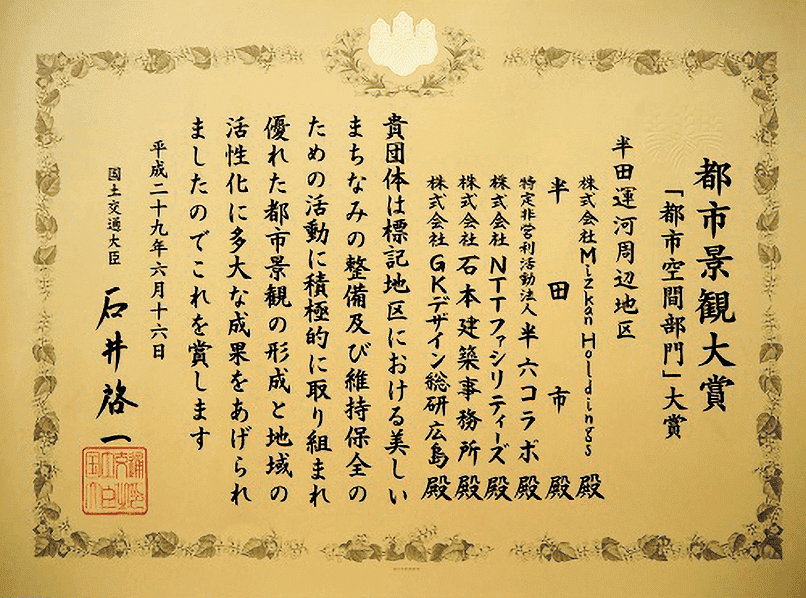 都市景観大賞
「都市空間部門」大賞
半田運河周辺地区
株式会社Mizkan Holdings 殿
半田市 殿
特定非営利活動法人 半六コラボ 殿
株式会社 NTTファシリティーズ 殿
株式会社 石本建築事務所 殿
株式会社 GKデザイン総研広島 殿
貴団体は標記地区における美しい
まちなみの整備及び維持保全の
ための活動に積極的に取り組まれ
優れた都市景観の形成と地域の
活性化に多大な成果をあげられ
ましたのでこれを賞します
平成二十九年六月十六日
国土交通大臣 石井啓一